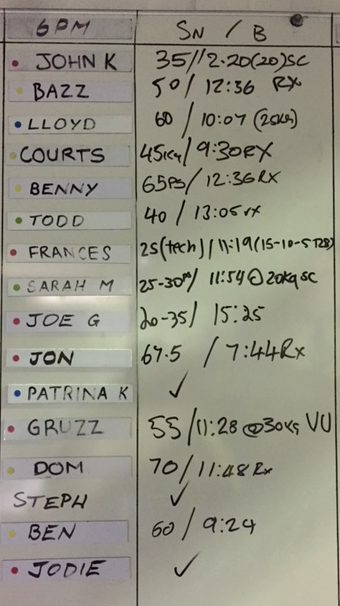 6PM SN / B
JOHN K 35//2.20(20)SC
BAZZ 50/ 12:36 RX
LLOYD 60 / 10:07 (25kg)
COURTS 45kg/ 9:30RX
BENNY 65PS/ 12:36RX
TODD 40 / 13:05rx
FRANCES 25(tech)/ 11:19(15-10-5
SARAH M 25-30 / 11:54@20kg SC
JOE G 20-35/ 15:25
JON 67.5 / 7:44Rx
PATRINA K ✓
GRUZZ 55/11:28 @30kg VU
DOM 70/11:48 Rx
STEPH ✓
BEN 60 / 9:24
JODIE ✓